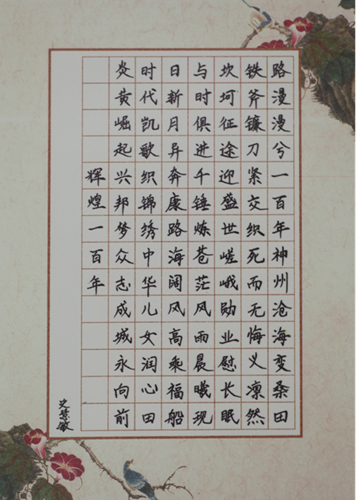 路漫漫兮一百年神州沧海变桑田
铁斧镰刀紧交织死而无悔义凛然
坎坷征途迎盛世嵯峨勋业慰长眠
与时俱进千锤炼苍茫风雨晨曦现
日新月异奔康路海阔风高乘福船
时代凯歌织锦绣中华儿女润心田
炎黄崛起兴邦梦众志成城永向前
辉煌一百年